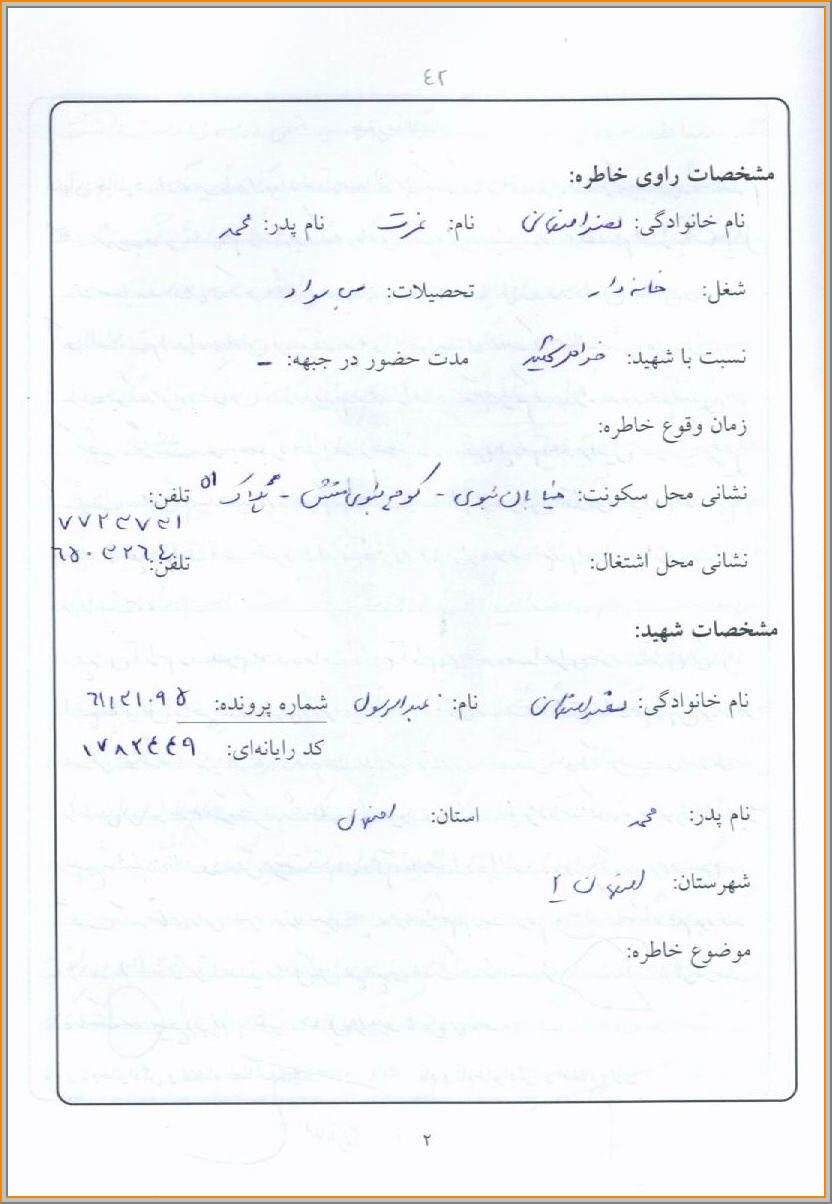 ۴۲
مشخصات راوی خاطره:
نام خانوادگی: صفدر اصفهانی نام: عزت نام پدر: محمد
شغل: خانه دار تحصیلات: بی سواد
نسبت با شهید: خواهر شهید مدت حضور در جبهه: –
زمان وقوع خاطره:
نشانی محل سکونت: خیابان نبوی - کوچه نبوی منش - پلاک ۵۱ تلفن:
نشانی محل اشتغال: تلفن:
مشخصات شهید:
نام خانوادگی: صفدر اصفهانی نام: عبدالرسول شماره پرونده: ۶۱۲۱۰۹۵
کد رایانه‌ای: ۱۷۸۲۴۴۹
نام پدر: محمد استان: اصفهان
شهرستان: اصفهان ۲
موضوع خاطره:
۲